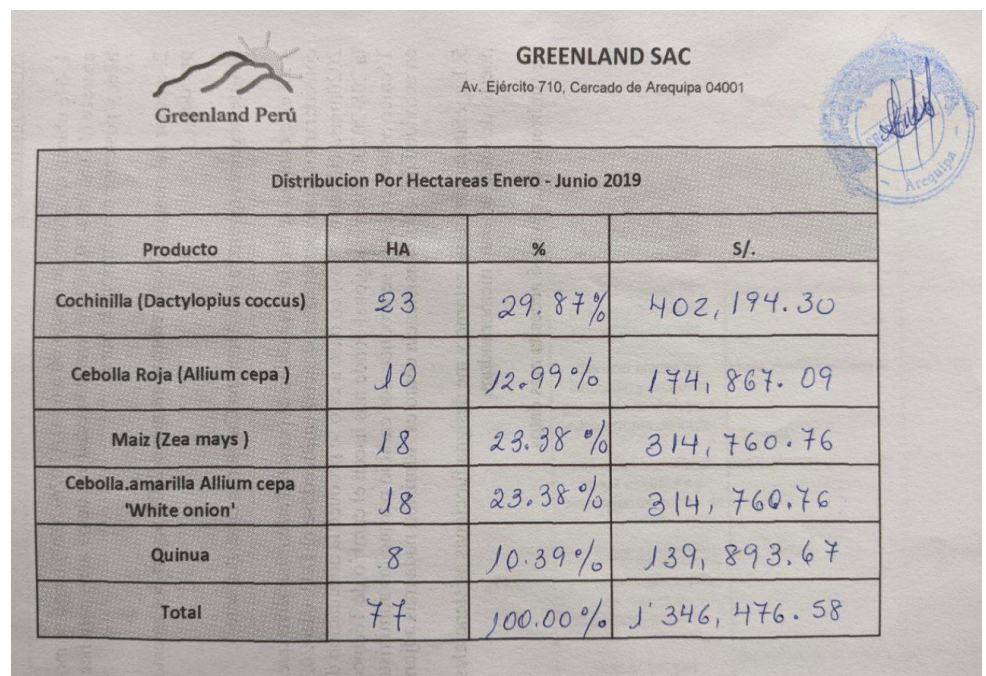 Greenland Perú
GREENLAND SAC
Av. Ejército 710, Cercado de Arequipa 04001
Arequipa
Distribucion Por Hectareas Enero - Junio 2019
Producto HA % S/.
Cochinilla (Dactylopius coccus) 23 29.87% 402,194.30
Cebolla Roja (Allium cepa ) 10 12.99% 174,867.09
Maiz (Zea mays ) 18 23.38% 314,760.76
Cebolla.amarilla Allium cepa
'White onion' 18 23.38% 314,760.76
Quinua 8 10.39% 139,893.67
Total 77 100.00% 1'346,476.58